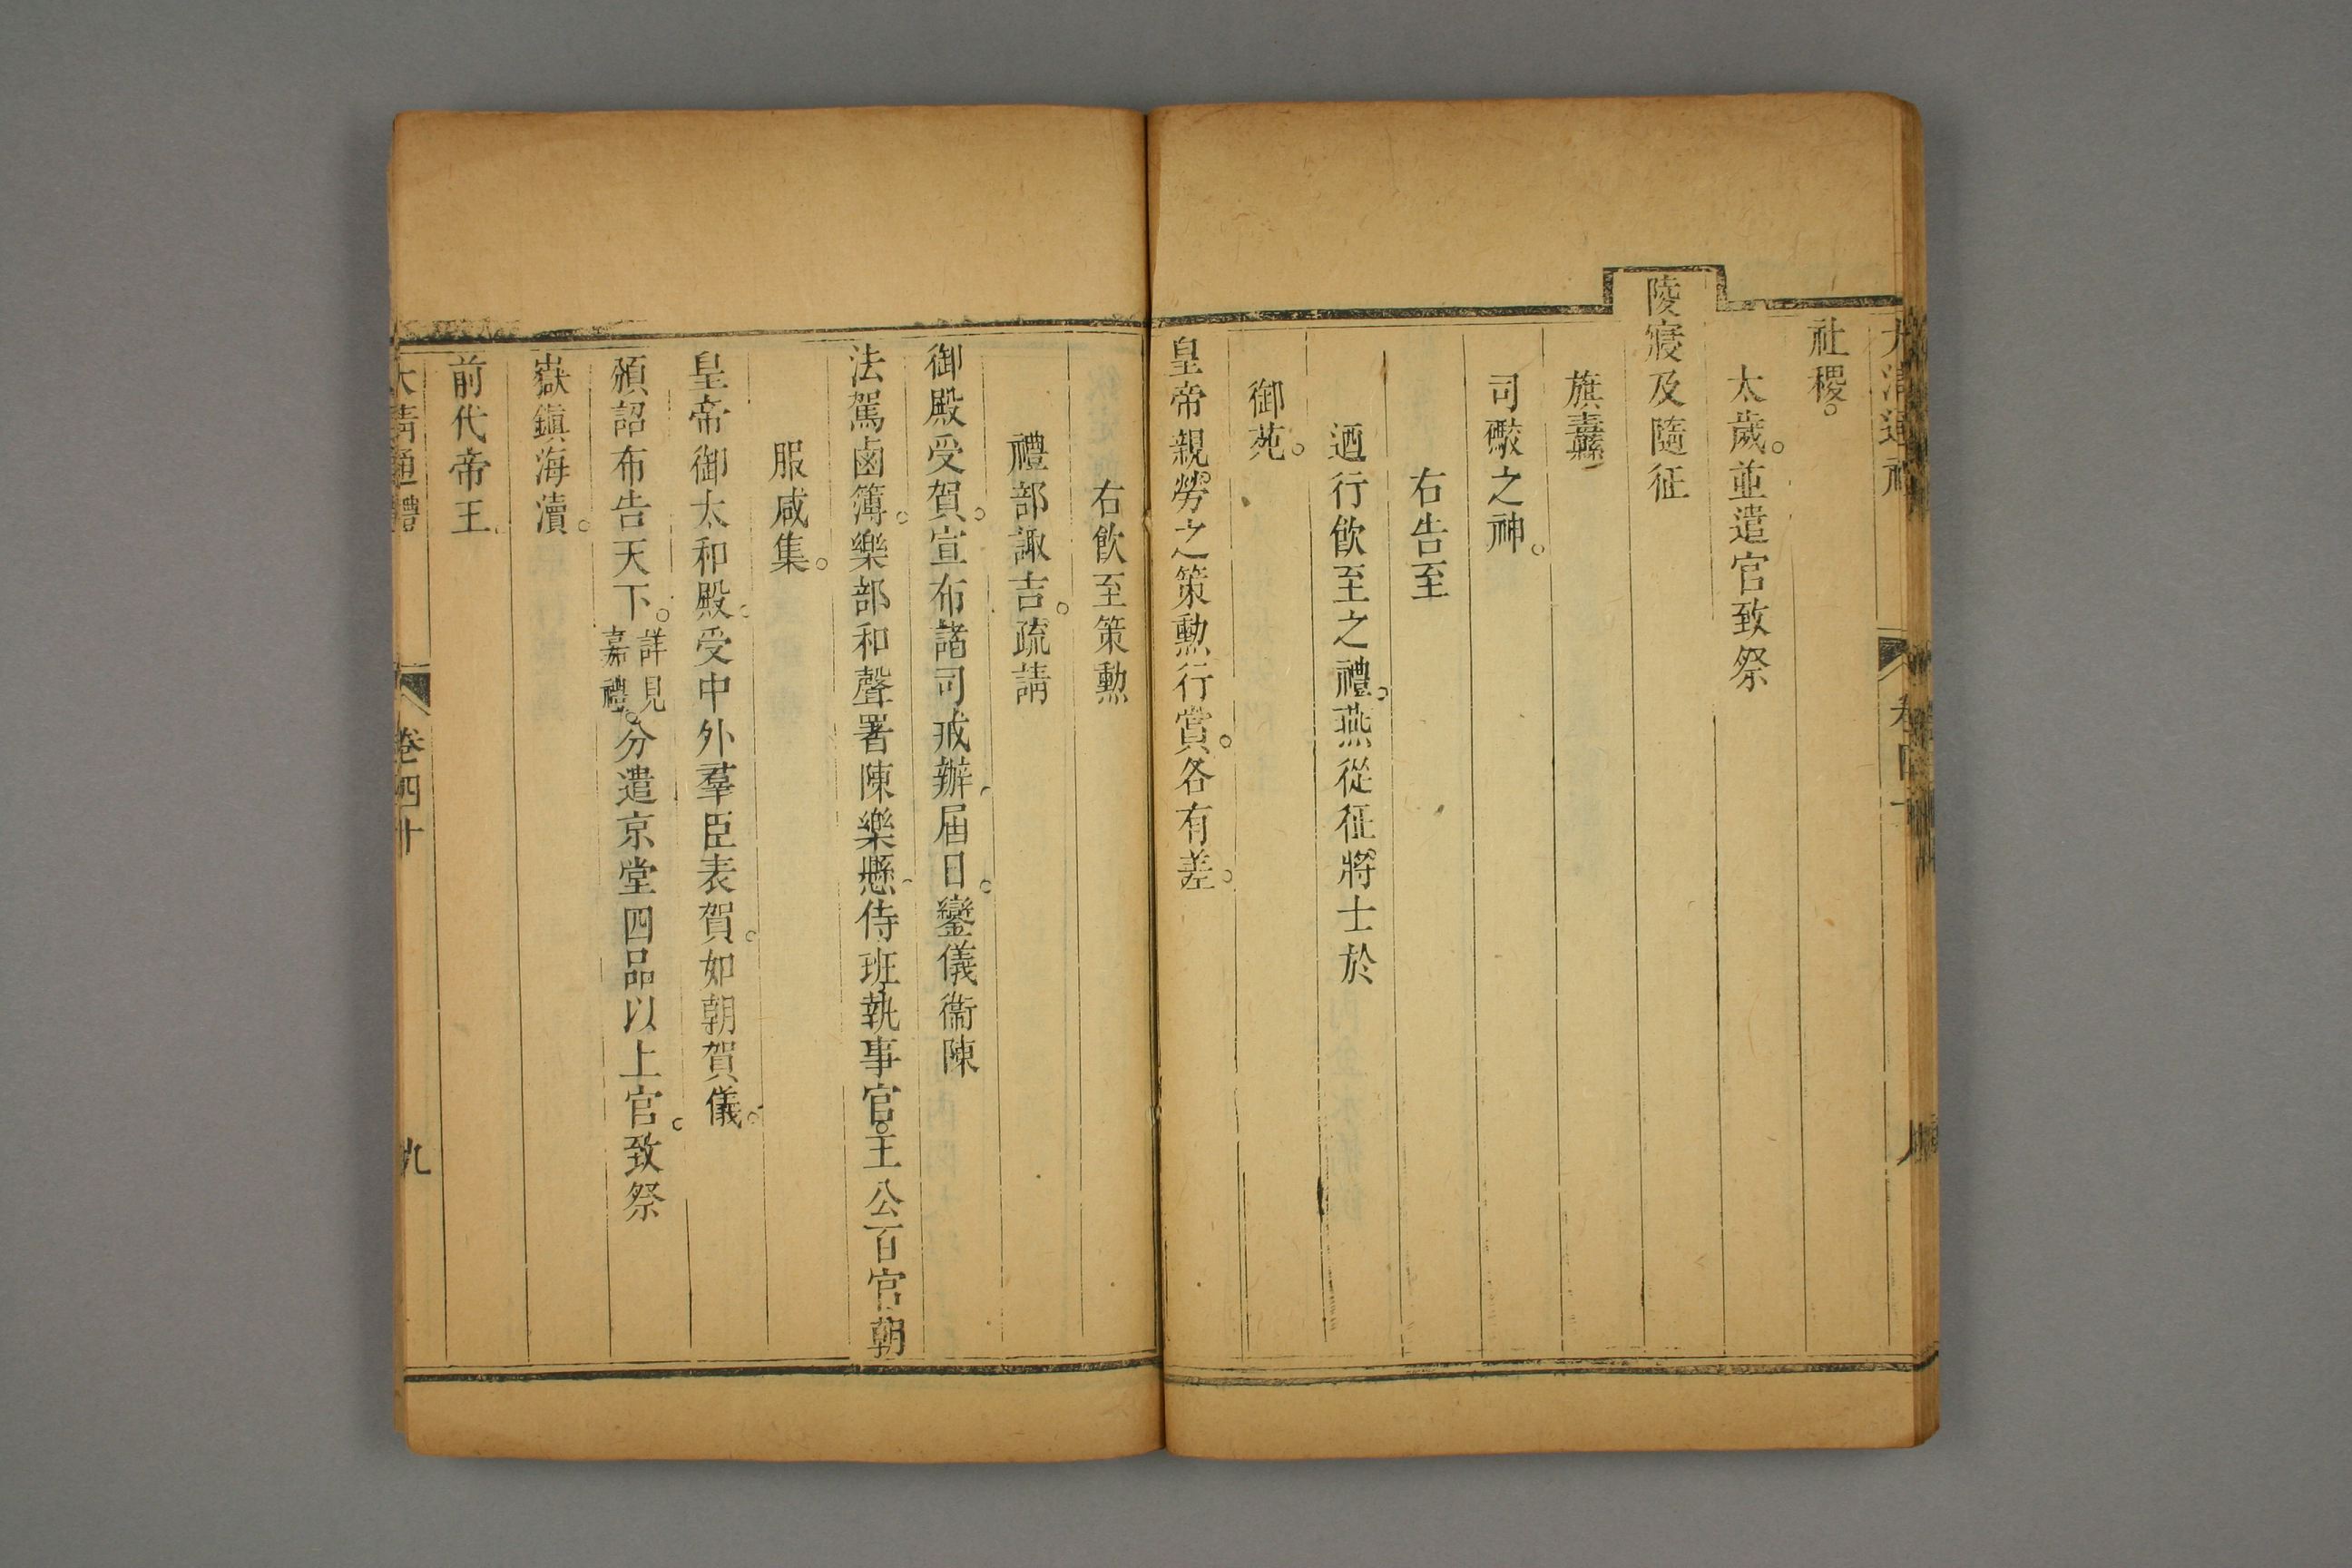 社稷。
太歲。並遣官致祭
陵寢及隨征
旗纛
司礮之神。
右告至
迺行飲至之禮。燕從征將士於
御苑。
皇帝親勞之策勲行賞。各有差。
右飲至策勲
禮部諏吉。疏請
御殿受賀。宣布諸司戒辦。屆日。鑾儀衞陳
法駕鹵簿。樂部和聲署陳樂懸。侍班執事官。王公百官朝
服咸集。
皇帝御太和殿。受中外羣臣表賀。如朝賀儀。
頒詔布告天下。詳見嘉禮。分遣京堂四品以上官。致祭
嶽鎮海瀆。
前代帝王
大清通禮 卷四十 九